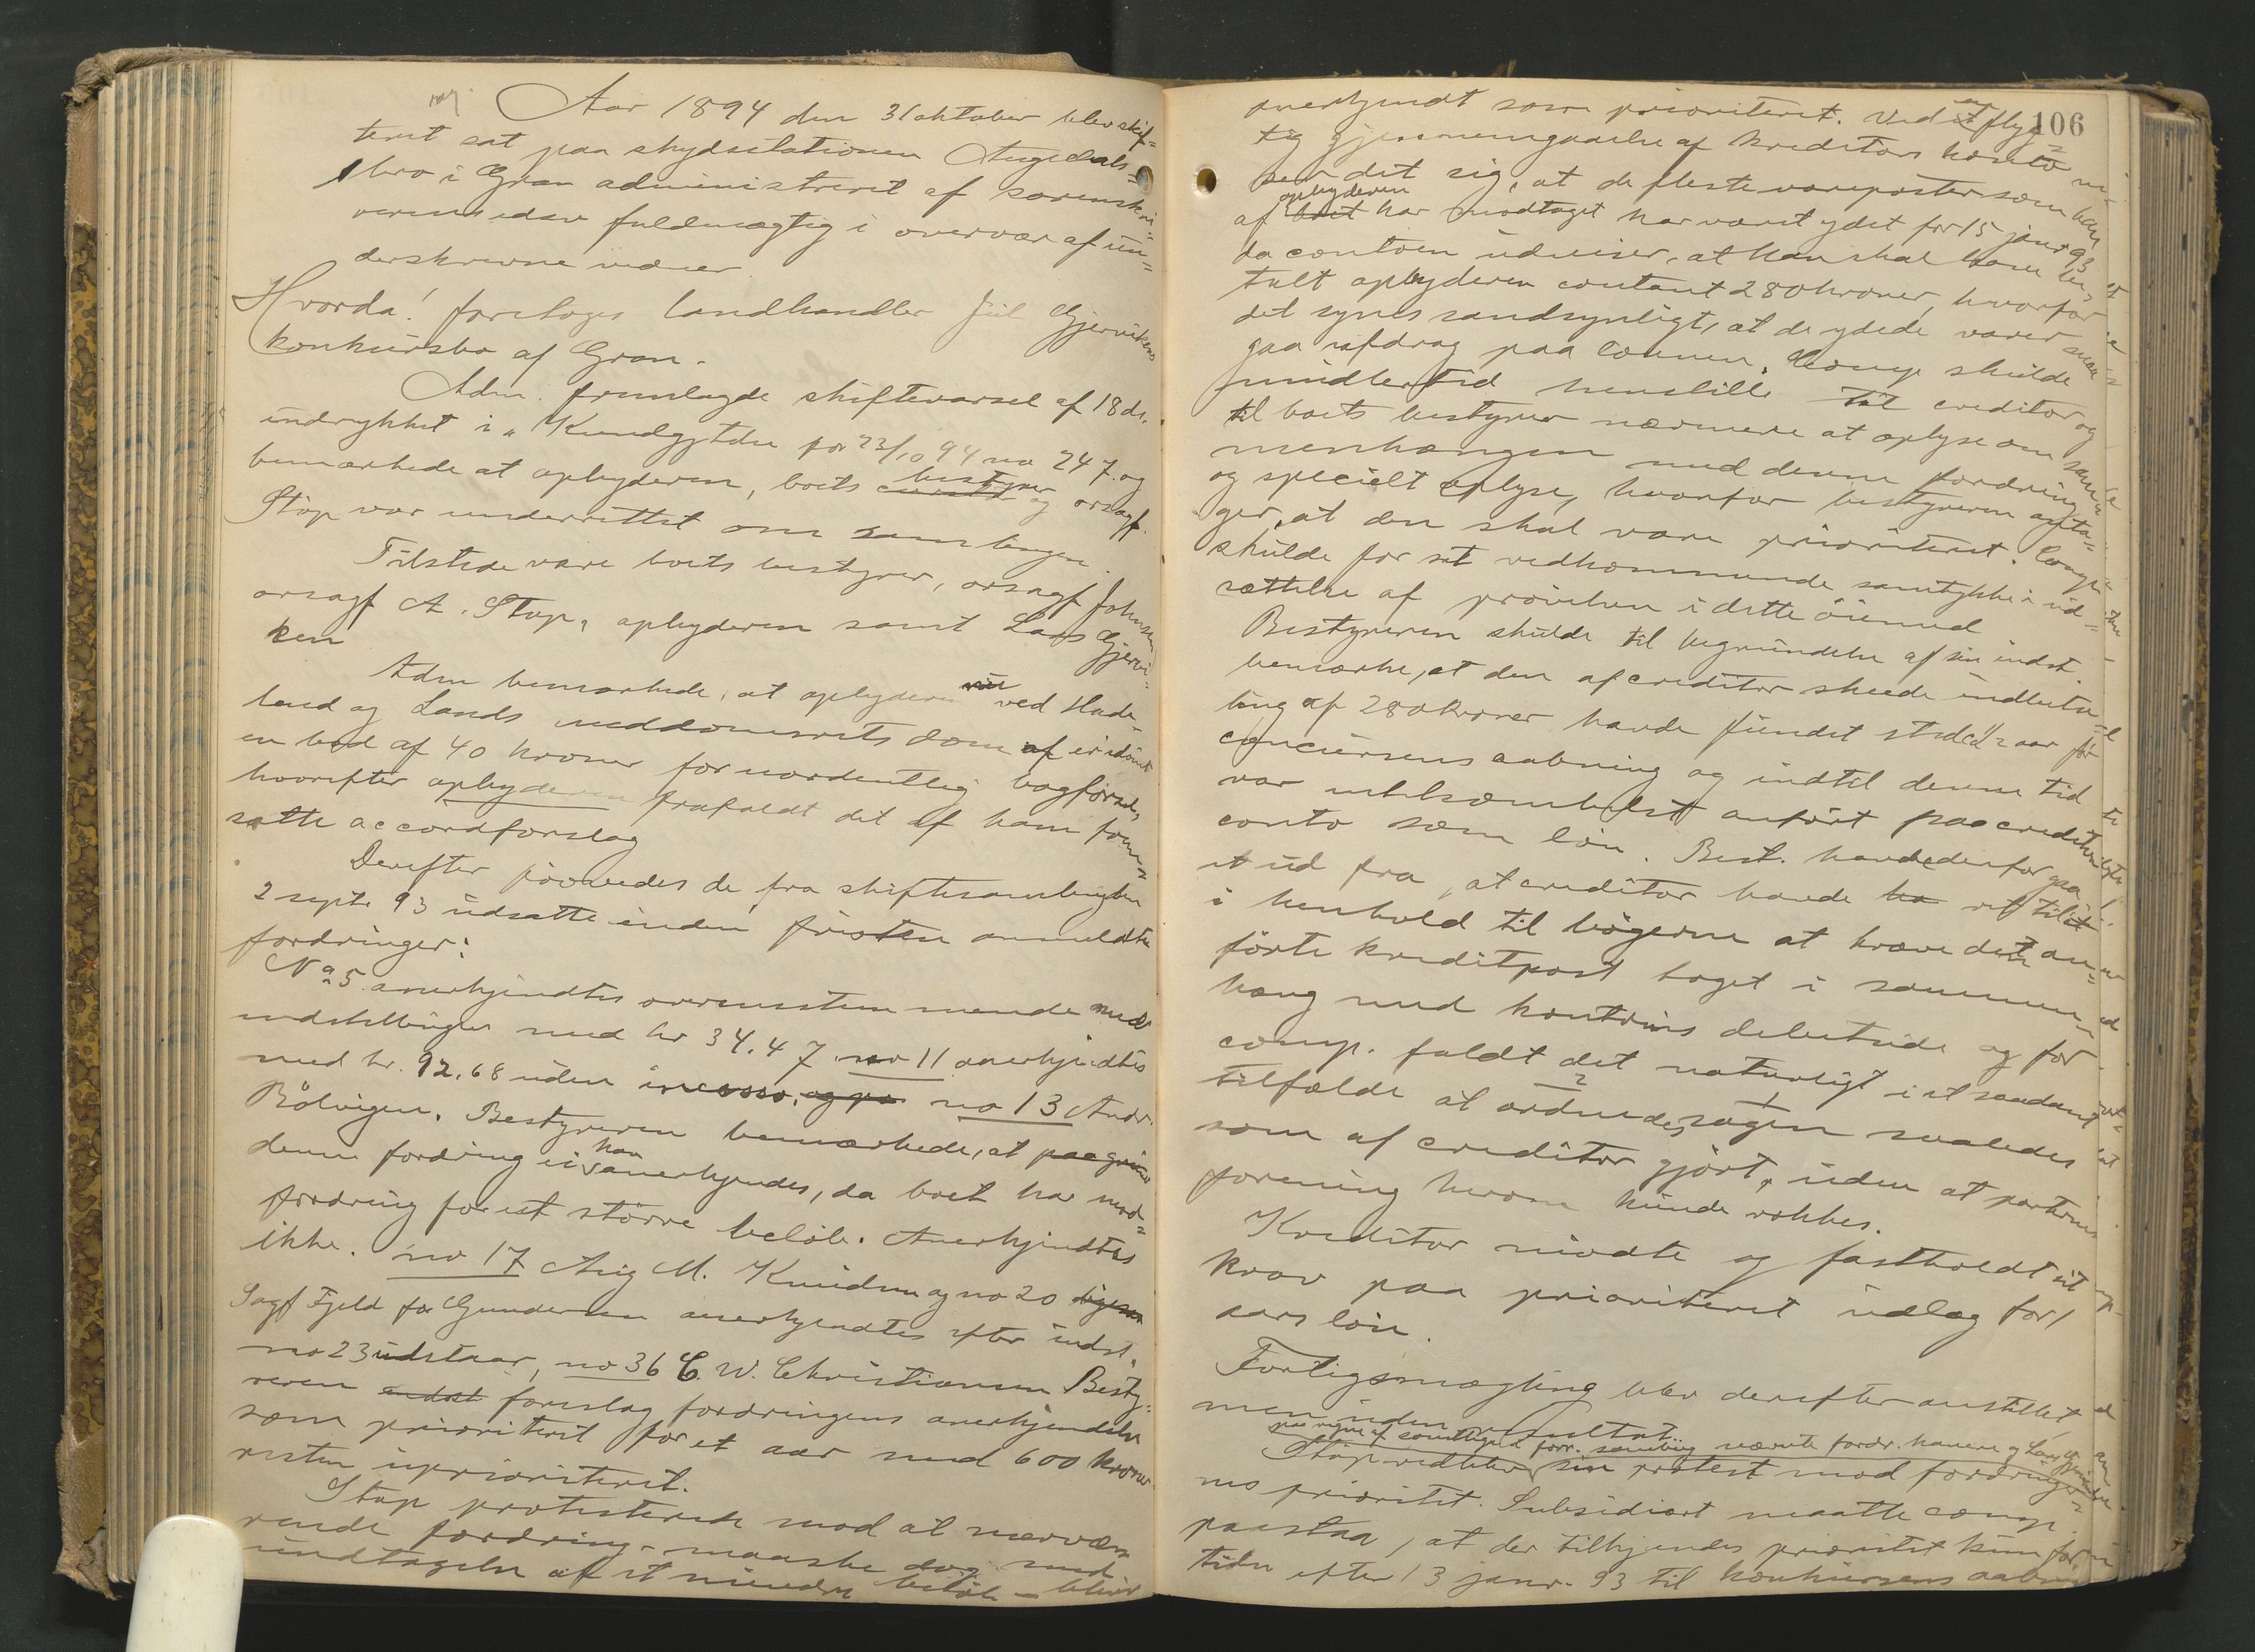 Aar 1894 den 31 oktober blev skif=
teret sat paa skydsstationen Augedals=
bro i Gran administreret af sorenskri=
verens edsv fuldmægtig i overvær af un=
derskrevne vidner.
Hvorda! foretoges landhandler Jul Gjervikens
konkursbo af Gran.
Adm. fremlagde skiftevarsel af 18 ds.
indrykket i „Kundgjtdn for 23/10 94 no 247. og
bemærkede at opbyderen, boets bestyrer og orsagf.
Stop var underrettet om samlingen.
Tilstede vare boets bestyrer, orsagf Johnsen
orsagf A. Stop, opbyderen samt Lars Gjervi=
ken
Adm bemærkede, at opbyderen nu ved Hade=
land og Lands meddomsrets dom af er idømt
en bod af 40 kroner for uordentlig bogførsel,
hvorefter opbyderen frafaldt det af ham frem=
satte accordforslag
Derefter prøvedes de fra skiftesamlingen
2 septr 93 udsatte inden fristen anmeldte
fordringer:
No 5 anerkjendtes overensstemmende med
indstillingen med kr 34.47. no 11 anerkjendtes
med kr. 92.68 uden incasso, og pa no 13 Andr.
Rølvigen. Bestyreren bemærkede, at paa grund
denne fordring ei kan anerkjendes, da boet har mod=
fordring for et større beløb. Anerkjendtes
ikke. no 17 Aug M. Knudsen og no 20 ligesaa
Sagf Fjeld for Gundersen anerkjendtes efter indst.
no 23 udstaar, no 36 C. W. Christiansen Besty=
reren indst foreslog fordringens anerkjendelse
som prioriteret for et aar med 600 kroner
resten uprioriteret.
Stop protesterede mod at nærvæ=
rende fordring - maaske dog med
undtagelse af et mindre beløb - bliver
106
anerkjendt som prioriteret. Ved en flyg=
tig gjennemgaaelse af kreditors konto vi=
ser det sig, at de fleste vareposter som han
af opbyderen boet har modtaget har været ydet før 15 janr 93
da contoen udviser, at han skal have be=
talt opbyderen contant 280 kroner, hvorfor
det synes sandsynligt, at de ydede varer maa
gaa i afdrag paa lønnen. Comp. skulde
imidlertid henstille til creditor og
til boets bestyrer nærmere at oplyse om sam=
menhængen med denne fordring
og specielt oplyse, hvorfor bestyreren anta=
ger, at den skal være prioriteret. Comp.
skulde for sit vedkommende samtykke i ud=
sættelse af prøvelsen i dette øiemed.
Bestyreren skulde til begrundelse af sin indst.
bemærke, at den af creditor skeede indbeta=
ling af 280 kroner havde fundet sted 1 1/2 aar før
concursens aabning og indtil denne tid
var intetsomhelst anført paa creditors
conto som løn. Best. havde derfor gaa=
et ud fra, at creditor havde ha ret til
i henhold til bøgerne at kræve den an=
førte kreditpost taget i sammen=
hæng med kontoens debetside og for
comp. faldt det naturligt i et saadant
tilfælde at ordnede sagen saaledes
som af creditor gjort, uden at parternes
forening herom kunde rokkes.
Kreditor mødte og fastholdt sit
krav paa prioriteret udlæg for 1
aars løn.
Forligsmægling blev derefter anstillet
men uden resultat.
paa vegne af samtlige i forr. samling nævnte fordr. havere og Lars Gjerviken
Stop vedblev sin protest mod fordringe=
ns prioritet. Subsidiært maatte comp.
paastaa, at der tilkjendes prioritet kun for
tiden efter 13 janr. 93 til konkursens aabn